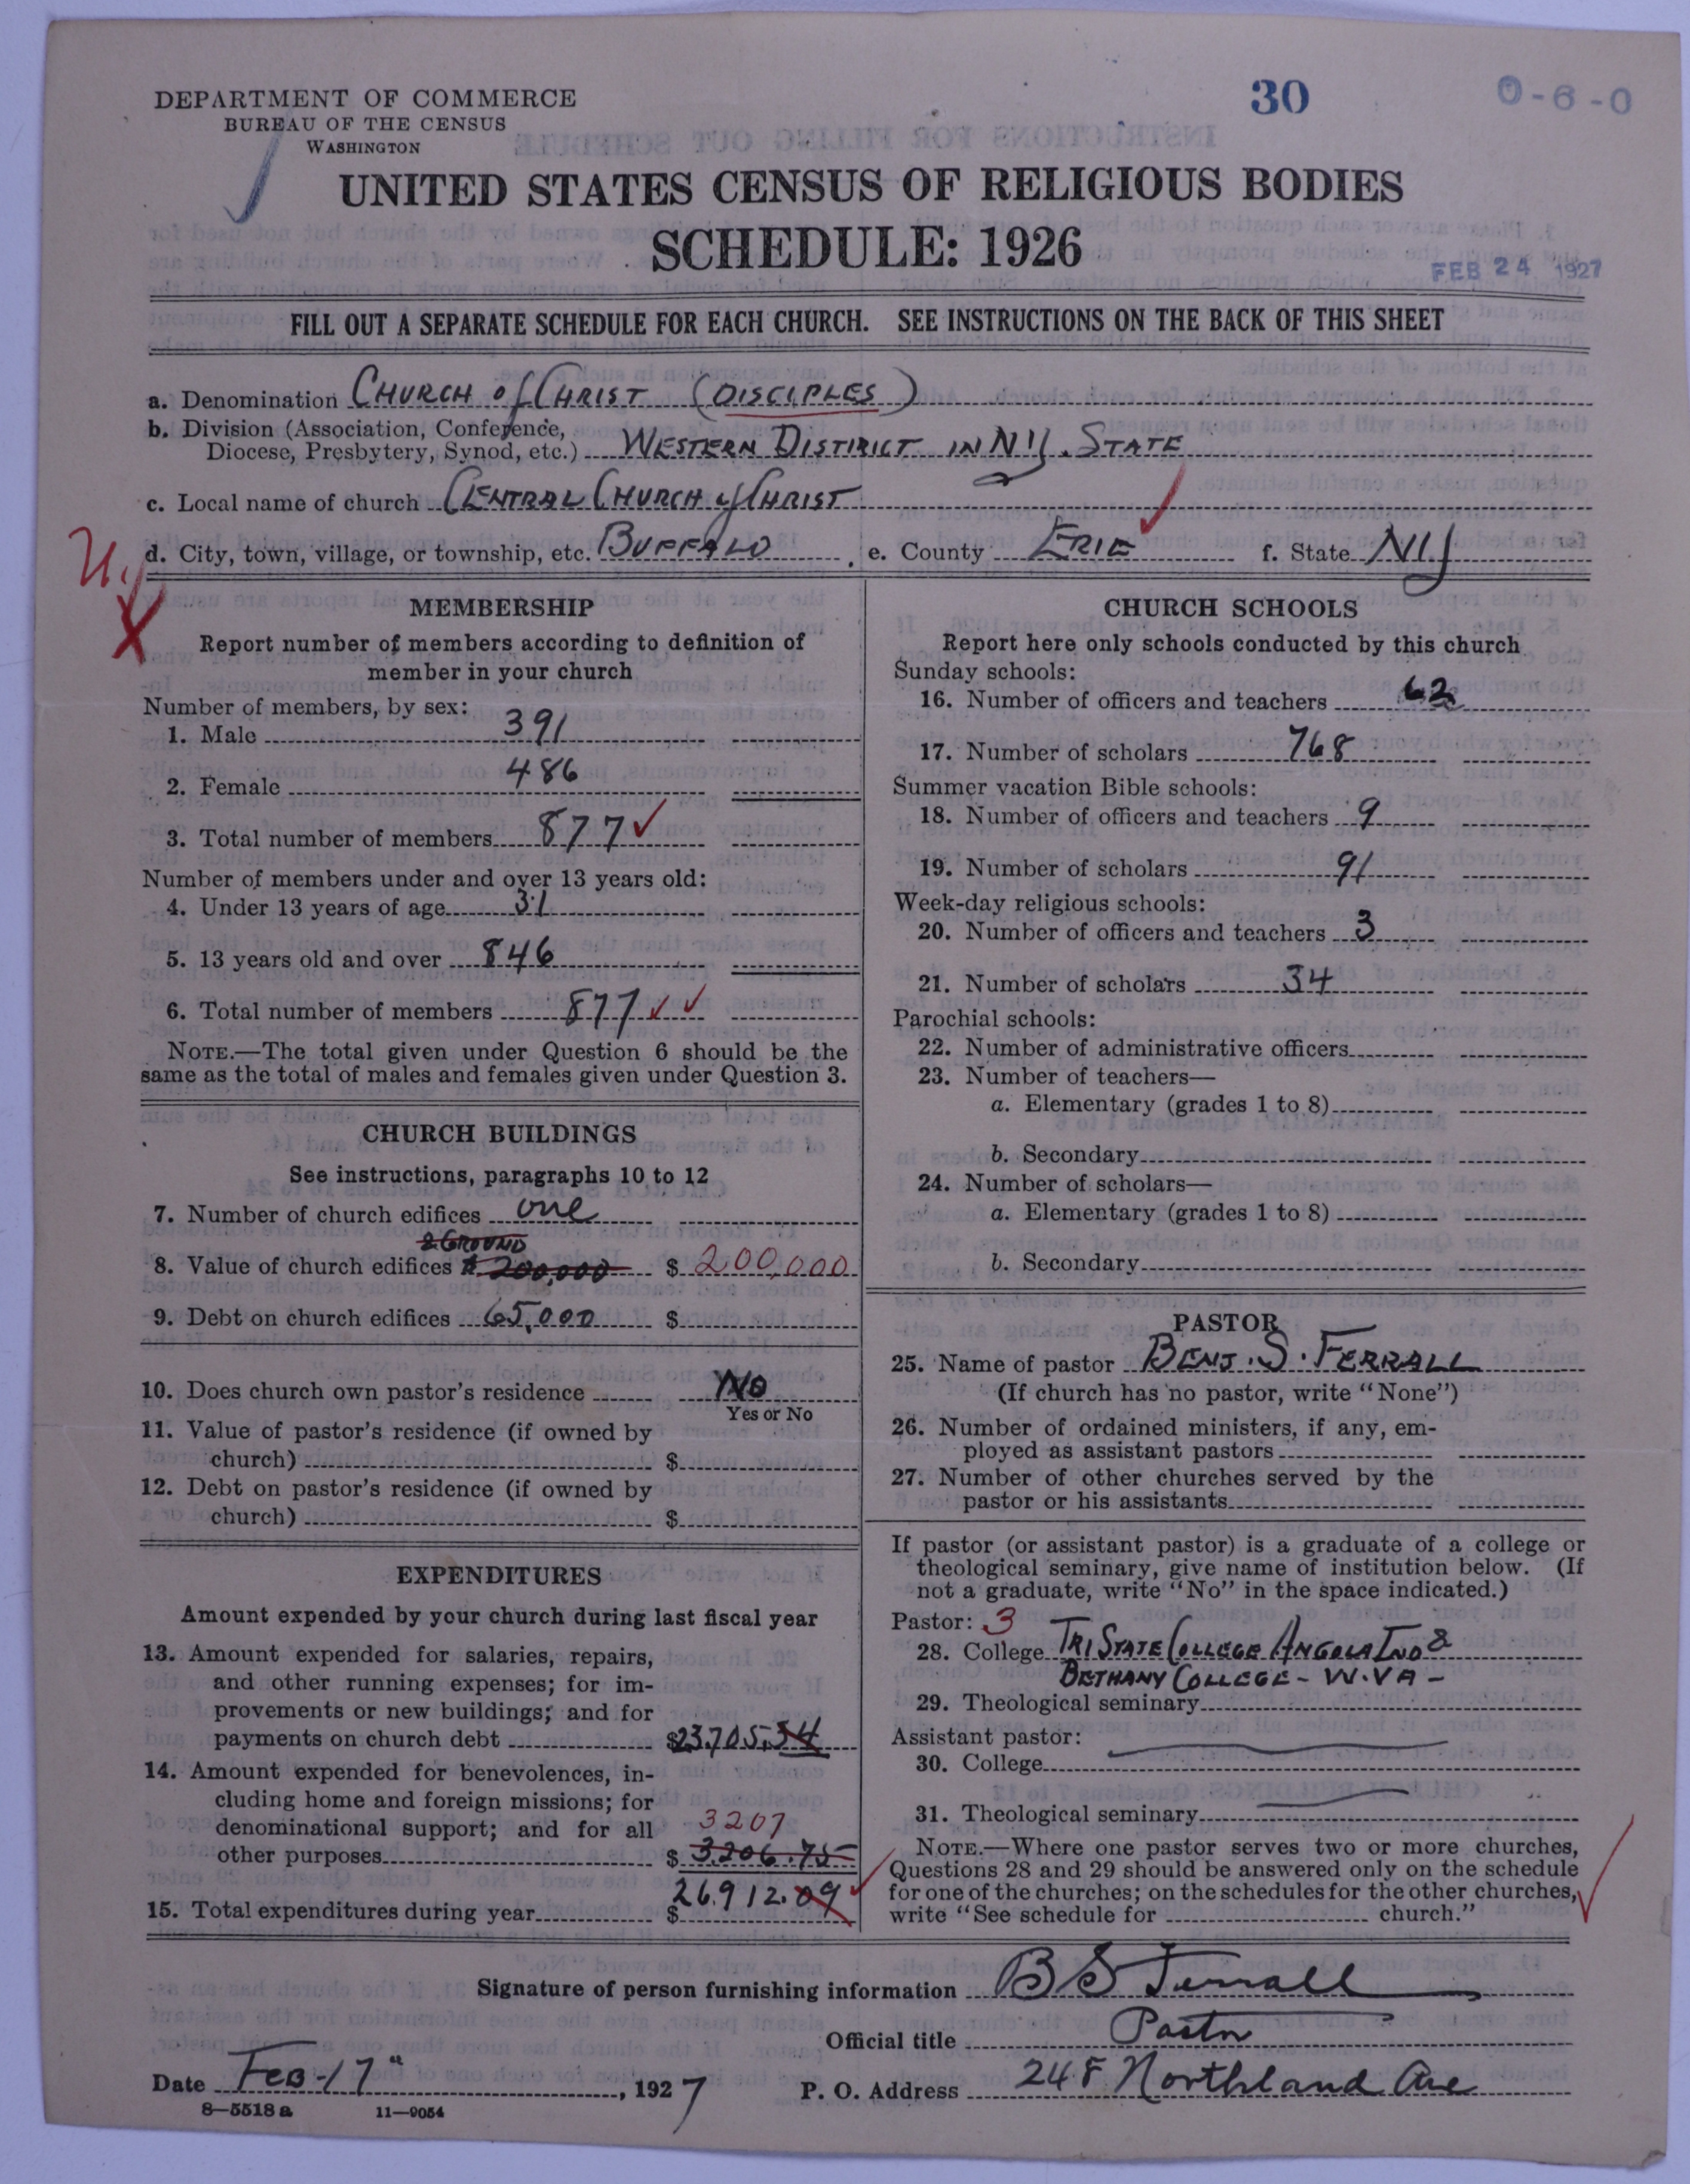 DEPARTMENT OF COMMERCE
BUREAU OF THE CENSUS
WASHINGTON
30
0-6-0
UNITED STATES CENSUS OF RELIGIOUS BODIES
SCHEDULE: 1926
FEB 24 1927
FILL OUT A SEPARATE SCHEDULE FOR EACH CHURCH. SEE INSTRUCTIONS ON THE BACK OF THIS SHEET
a. Denomination CHURCH of CHRIST (DISCIPLES)
b. Division (Association, Conference,
Diocese, Presbytery, Synod, etc.) WESTERN DISTIRICT IN N.Y. STATE
c. Local name of church CENTRAL CHURCH of CHRIST
U.
d. City, town, village, or township, etc. BUFFALO, e. County ERIE f. State NY
X
MEMBERSHIP
Report number of members according to definition of
member in your church
Number of members, by sex:
1. Male 391
2. Female 486
3. Total number of members 877 ✓
Number of members under and over 13 years old:
4. Under 13 years of age 31
5. 13 years old and over 846
6. Total number of members 877 ✓ ✓
NOTE.—The total given under Question 6 should be the
same as the total of males and females given under Question 3.
CHURCH BUILDINGS
See instructions, paragraphs 10 to 12
7. Number of church edifices one
& GROUND
8. Value of church edifices $ 200,000 $ 200,000
9. Debt on church edifices 65,000 $
10. Does church own pastor's residence No
Yes or No
11. Value of pastor's residence (if owned by
church) $
12. Debt on pastor's residence (if owned by
church) $
EXPENDITURES
Amount expended by your church during last fiscal year
13. Amount expended for salaries, repairs,
and other running expenses; for im-
provements or new buildings; and for
payments on church debt $23,705.34
14. Amount expended for benevolences, in-
cluding home and foreign missions; for
denominational support; and for all 3207
other purposes $ 3,206.75
15. Total expenditures during year $ 26,912.09 ✓
CHURCH SCHOOLS
Report here only schools conducted by this church
Sunday schools:
16. Number of officers and teachers 62
17. Number of scholars 768
Summer vacation Bible schools:
18. Number of officers and teachers 9
19. Number of scholars 91
Week-day religious schools:
20. Number of officers and teachers 3
21. Number of scholars 34
Parochial schools:
22. Number of administrative officers
23. Number of teachers—
a. Elementary (grades 1 to 8)
b. Secondary
24. Number of scholars—
a. Elementary (grades 1 to 8)
b. Secondary
PASTOR
25. Name of pastor BENJ. S. FERRALL
(If church has no pastor, write "None")
26. Number of ordained ministers, if any, em-
ployed as assistant pastors
27. Number of other churches served by the
pastor or his assistants
If pastor (or assistant pastor) is a graduate of a college or
theological seminary, give name of institution below. (If
not a graduate, write "No" in the space indicated.)
Pastor: 3
28. College TRI STATE COLLEGE ANGOLA IND &
BETHANY COLLEGE - W.VA -
29. Theological seminary
Assistant pastor:
30. College
31. Theological seminary
NOTE.—Where one pastor serves two or more churches,
Questions 28 and 29 should be answered only on the schedule
for one of the churches; on the schedules for the other churches,
write "See schedule for church."
Signature of person furnishing information B S Ferrall
Official title Pastor
Date FEB-17", 1927 P. O. Address 248 Northland Ave
8—5518 a 11—9054